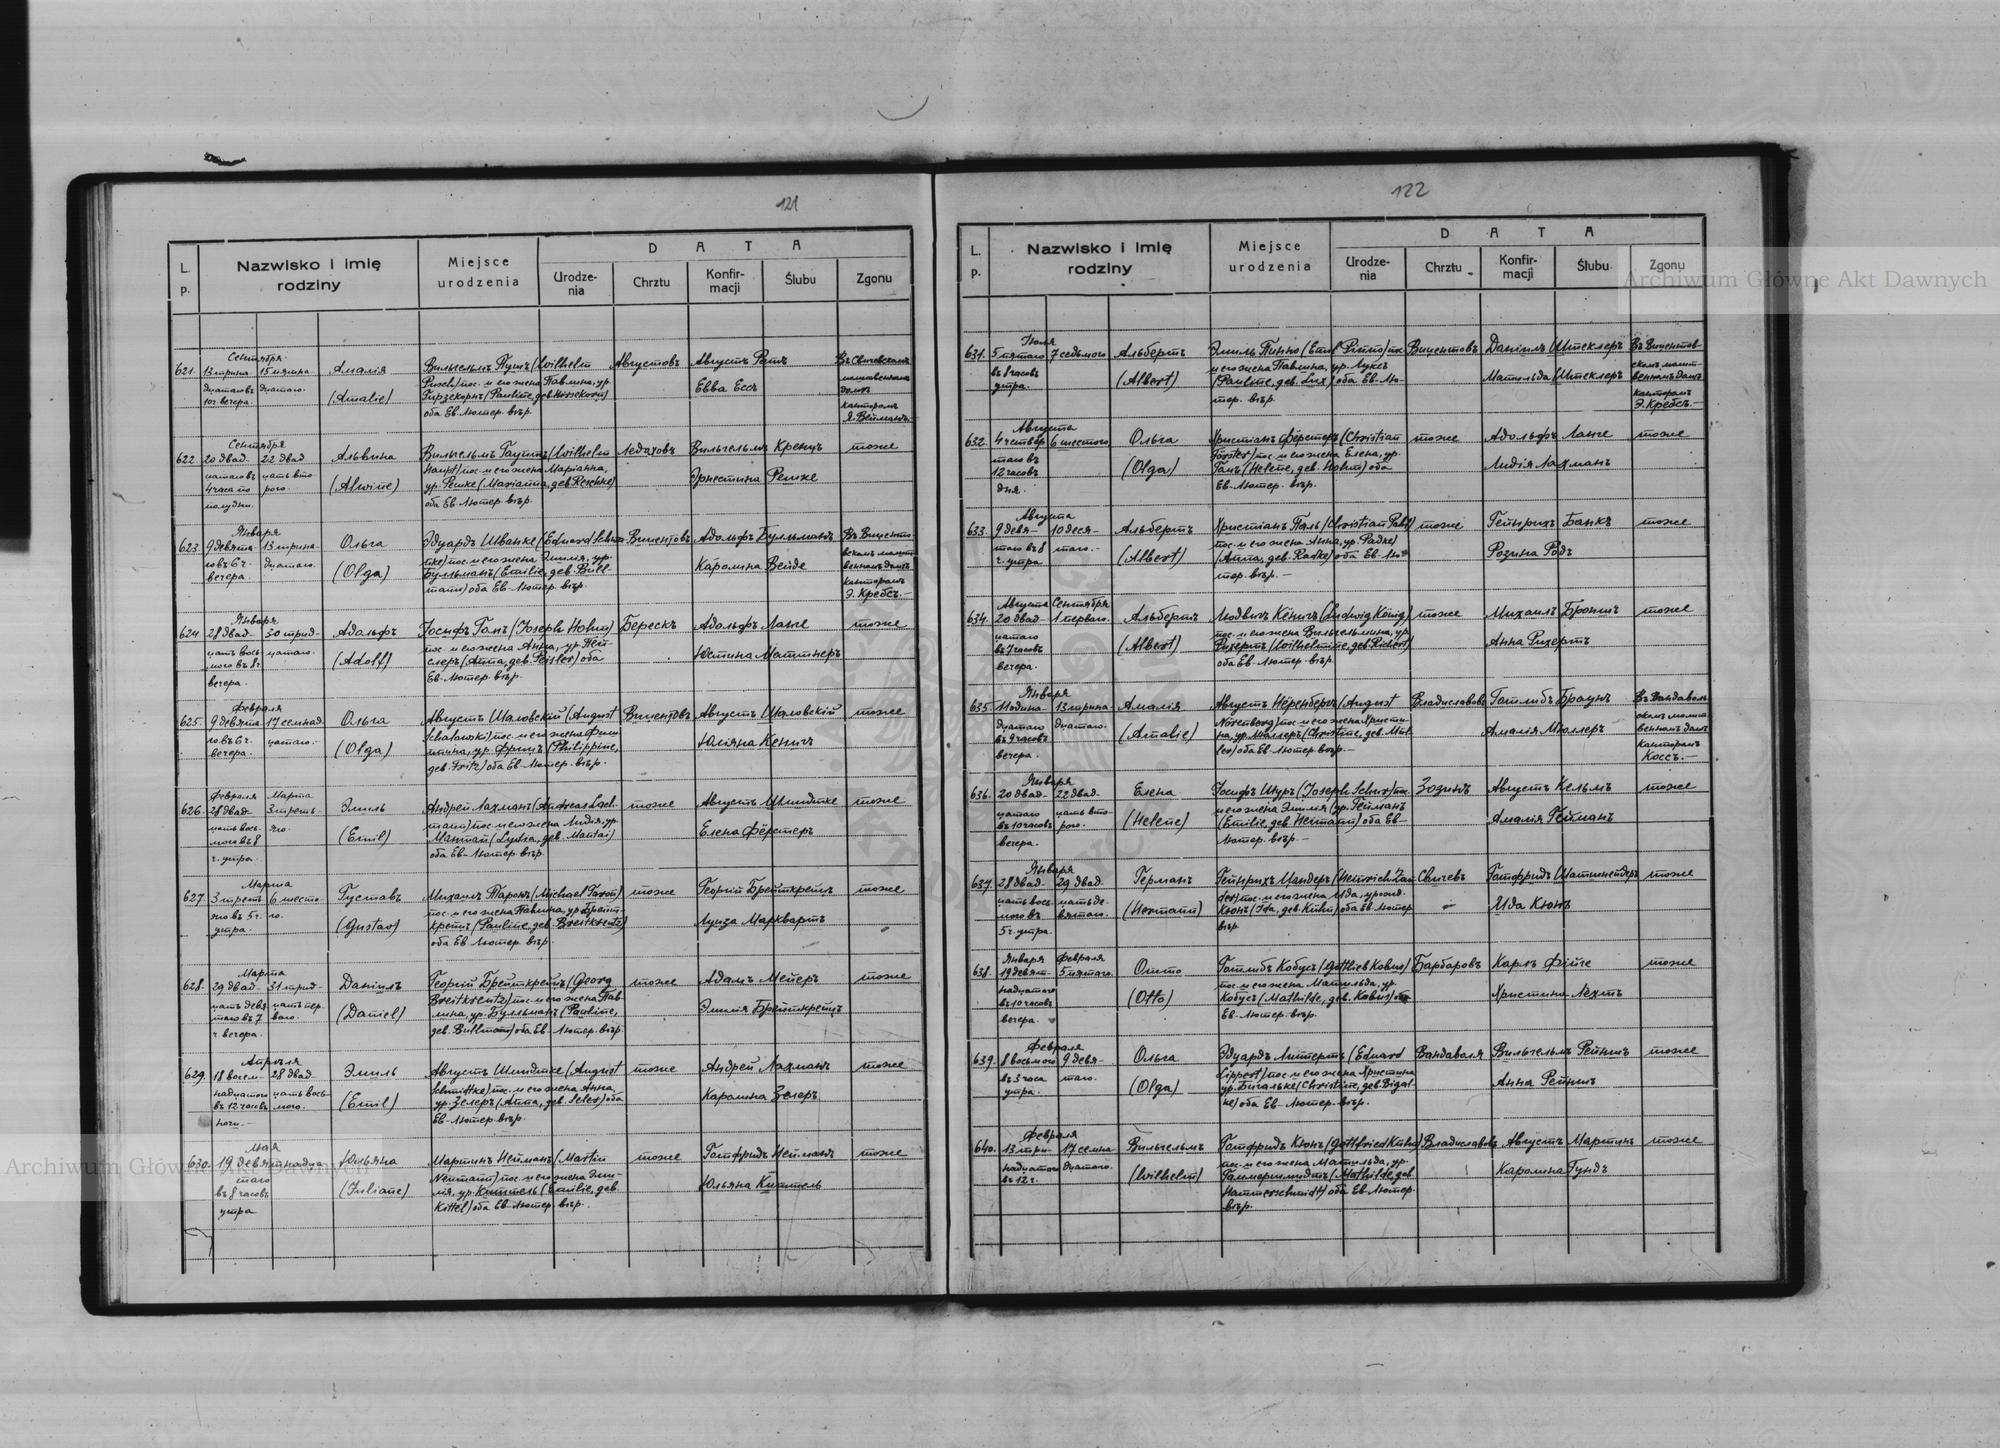 121
L. p.
Nazwisko i imię rodziny
Miejsce urodzenia
D A T A
Urodze-nia
Chrztu
Konfir-macji
Ślubu
Zgonu
621.
Сентября
13 трина 15 пятна
дцатаго въ дцатаго.
10 ч. вечера.
Амалія
(Amalie)
Вильгельмъ Пушъ (Wilhelm
Pusch) пос. и его жена Павлина, ур.
Гирзекорнъ (Pauline, geb. Hirsekorn)
оба Ев. Лютер. вѣр.
Августовъ
Августъ Ратъ
Евва Ессъ
Въ Свичевскомъ
молитвенномъ
домѣ
канторомъ
622.
Сентября
20 двад- 22 двад
цатаго въ цать вто
4 часа по рого.
полудни.
Альвина
(Alwine)
Вильгельмъ Гауптъ (Wilhelm
Haupt) пос. и его жена Маріанна,
ур. Решке (Marianna, geb. Reschke)
оба Ев. Лютер. вѣр.
Ледаховъ
Вильгельмъ Кренцъ
Эрнестина Решке
тоже
623.
Января
9 девята 13 трина-
го въ 6 ч. дцатаго.
вечера.
Ольга
(Olga)
Эдуардъ Шванке (Eduard Schwan-
ke) пос. и его жена Эмилія, ур.
Бульманъ (Emilie, geb. Bull-
mann) оба Ев. Лютер. вѣр.
Вицентовъ
Адольфъ Булльманъ
Каролина Вейде
Въ Вицентов-
скомъ молит-
венномъ домѣ
канторомъ
Э. Кребсъ.
624.
Января
28 двад- 30 трид-
цать вось цатаго.
мого въ 8 ч.
вечера.
Адольфъ
(Adolf)
Іосифъ Гомъ (Joseph Hohm)
пос. и его жена Анна, ур. Пей-
слеръ (Anna, geb. Peisler) оба
Ев. Лютер. вѣр.
Берескъ
Адольфъ Ланге
Юстина Матшнеръ
тоже
625.
Февраля
9 девята 17 семнад
го въ 6 ч. цатаго.
вечера.
Ольга
(Olga)
Августъ Шаловскій (August
Schalowski) пос. и его жена Фили
ппина, ур. Фрицъ (Philippine,
geb. Fritz) оба Ев. Лютер. вѣр.
Вицентовъ
Августъ Шаловскій
Юліяна Кенигъ
тоже
626.
Февраля Марта
28 двад- 3 треть-
цать вось- яго.
мого въ 8
ч. утра.
Эмиль
(Emil)
Андрей Лахманъ (Andreas Lach-
mann) пос. и его жена Лидія, ур.
Мантай (Lydia, geb. Mantai)
оба Ев. Лютер. вѣр.
тоже
Августъ Шмидтке
Елена Фёрстеръ
тоже
627.
Марта
3 треть 6 шесто
яго въ 5 ч. го.
утра.
Густавъ
(Gustav)
Михаилъ Таронъ (Michael Taron)
пос. и его жена Павлина, ур. Брейт-
крейцъ (Pauline, geb. Breitkreutz)
оба Ев. Лютер. вѣр.
тоже
Георгій Брейткрейцъ
Луиза Марквартъ
тоже
628.
Марта
29 двад- 31 трид-
цать девя цать пер
таго въ 7 ваго.
ч. вечера.
Даніилъ
(Daniel)
Георгій Брейткрейцъ (Georg
Breitkreutz) пос. и его жена Пав
лина, ур. Булльманъ (Pauline,
geb. Bullmann) оба Ев. Лютер. вѣр.
тоже
Адамъ Мейеръ
Эмилія Брейткрейцъ
тоже
629.
Апрѣля
18 восем- 28 двад-
надцатого цать вось
въ 12 часовъ мого.
ночи.
Эмиль
(Emil)
Августъ Шмидтке (August
Schmidtke) пос. и его жена Анна,
ур. Зелеръ (Anna, geb. Seler) оба
Ев. Лютер. вѣр.
тоже
Андрей Лахманъ
Каролина Зелеръ
тоже
630.
Мая
19 девятнадца
таго
въ 8 часовъ
утра
Юльяна
(Juliane)
Мартинъ Нейманъ (Martin
Neumann) пос. и его жена Эми-
лія, ур. Киттель (Emilie, geb.
Kittel) оба Ев. Лютер. вѣр.
тоже
Готфридъ Нейманъ
Юльяна Киттель
тоже
122
L. p.
Nazwisko i imię rodziny
Miejsce urodzenia
D A T A
Urodze-nia
Chrztu
Konfir-macji
Ślubu
Zgonu
631.
Іюля
5 пятаго 7 седьмого
въ 8 часовъ
утра.
Альбертъ
(Albert)
Эмиль Пинно (Emil Pinno) пос.
и его жена Павлина, ур. Луксъ
(Pauline, geb. Lux) оба Ев. Лю-
тер. вѣр.
Вицентовъ
Даніилъ Штеклеръ
Матильда Штеклеръ
Въ Вицентов-
скомъ молит-
венномъ домѣ
канторомъ
Э. Кребсъ.
632.
Августа
4 четвёр 6 шестого
таго въ
12 часовъ
дня.
Ольга
(Olga)
Христіанъ Фёрстеръ (Christian
Förster) пос. и его жена Елена, ур.
Гомъ (Helene, geb. Hohm) оба
Ев. Лютер. вѣр.
тоже
Адольфъ Ланге
Лидія Лахманъ
тоже
633.
Августа
9 девя- 10 деся-
таго въ 8 таго.
ч. утра
Альбертъ
(Albert)
Христіанъ Паль (Christian Pahl)
пос. и его жена Анна, ур. Радке
(Anna, geb. Radke) оба Ев. Лю
тер. вѣр.
тоже
Гейнрихъ Банкъ
Розина Родъ
тоже
634.
Августа Сентября
20 двад- 1 перваго.
цатаго
въ 7 часовъ
вечера.
Альбертъ
(Albert)
Людвигъ Кёнигъ (Ludwig König)
пос. и его жена Вильгельмина, ур.
Рихертъ (Wilhelmine, geb. Richert)
оба Ев. Лютер. вѣр.
тоже
Михаилъ Бронштъ
Анна Рихертъ
тоже
635.
Января
11 одина- 13 трина-
дцатаго дцатаго.
въ 9 часовъ
вечера.
Амалія
(Amalie)
Августъ Нёренбергъ (August
Nörenberg) пос. и его жена Христи-
на, ур. Мюллеръ (Christine, geb. Mül-
ler) оба Ев. Лютер. вѣр.
Владиславовъ
Готлибъ Браунъ
Амалія Мюллеръ
Въ Вандаволь
скомъ молит
венномъ домѣ
канторомъ
Коссъ.
636.
Января
20 двад- 22 двад-
цатаго цать вто
въ 10 часовъ рого.
вечера.
Елена
(Helene)
Іосифъ Шуръ (Joseph Schur) пос.
и его жена Эмилія (ур. Гейманъ
(Emilie, geb. Heimann) оба Ев-
Лютер. вѣр.
Зозинъ
Августъ Кельмъ
Амалія Гейманъ
тоже
637.
Января
28 двад- 29 двад-
цать вось- цать де-
мого въ вятаго.
5 ч. утра.
Германъ
(Hermann)
Гейнрихъ Цандеръ (Heinrich Zan
der) пос. и его жена Ида, урожд.
Кюнъ (Ida, geb. Kühn) оба Ев. Лютер.
вѣр.
Свичевъ
Готфридъ Шатшнейдеръ
Ида Кюнъ
тоже
638.
Января Февраля
19 девят- 5 пятаго.
надцатаго
въ 10 часовъ
вечера.
Отто
(Otto)
Готлибъ Кобусъ (Gottlieb Kobus)
пос. и его жена Матильда, ур.
Кобусъ (Mathilde, geb. Kobus) оба
Ев. Лютер. вѣр.
Барбаровъ
Карлъ Фейге
Христина Лехтъ
тоже
639.
Февраля
8 восьмого 9 девя-
въ 3 часа таго.
утра.
Ольга
(Olga)
Эдуардъ Липпертъ (Eduard
Lippert) пос. и его жена Христина
ур. Бигальке (Christine, geb. Bigal-
ke) оба Ев. Лютер. вѣр.
Вандаволя
Вильгельмъ Рейншъ
Анна Рейншъ
тоже
640.
Февраля
13 три- 17 семна
надцатого дцатаго.
въ 12 ч.
Вильгельмъ
(Wilhelm)
Готфридъ Кюнъ (Gottfried Kühn)
пос. и его жена Матильда, ур.
Гаммершмидтъ (Mathilde, geb.
Hammerschmidt) оба Ев. Лютер.
вѣр.
Владиславовъ
Августъ Мартинъ
Каролина Гундъ
тоже
Archiwum Główne Akt Dawnych
Archiwum Główne Akt Dawnych